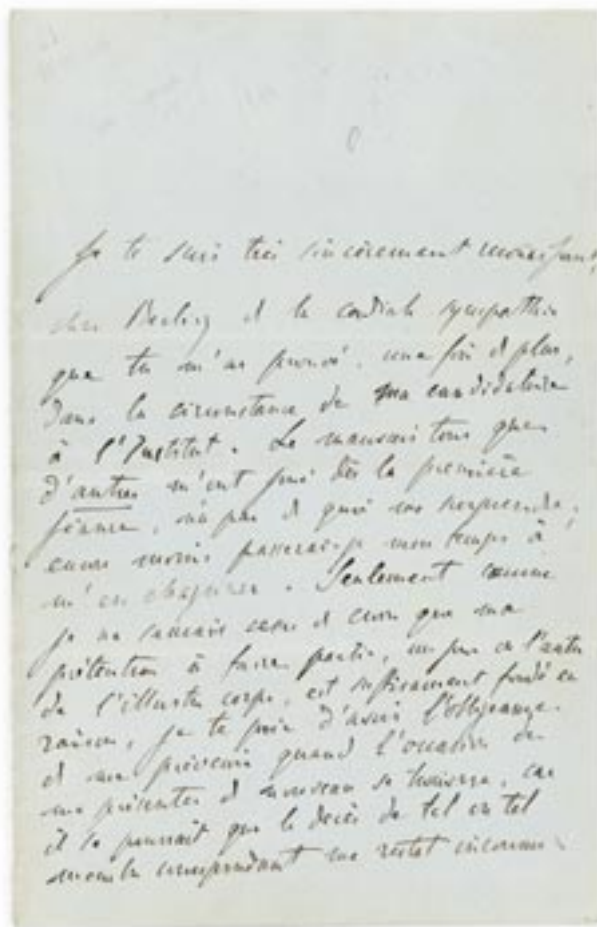 Je te suis très sincèrement reconnaissant,
cher Berlioz de la cordiale sympathie
que tu m'as prouvé, une fois de plus,
dans la circonstance de ma candidature
à l'Institut. Le mauvais tour que
d'autres m'ont joué dès la première
séance, n'a pas de quoi me surprendre,
encore moins passerai-je mon temps à
m'en chagriner. Seulement comme
je ne saurais cesser de croire que ma
prétention à faire partie, un jour ou l'autre
de l'illustre corps, est suffisamment fondé en
raison, je te prie d'avoir l'obligeance
de me prévenir quand l'occasion de
me présenter de nouveau se trouvera, car
il se pourrait que le décès de tel ou tel
membre correspondant me restat inconnu